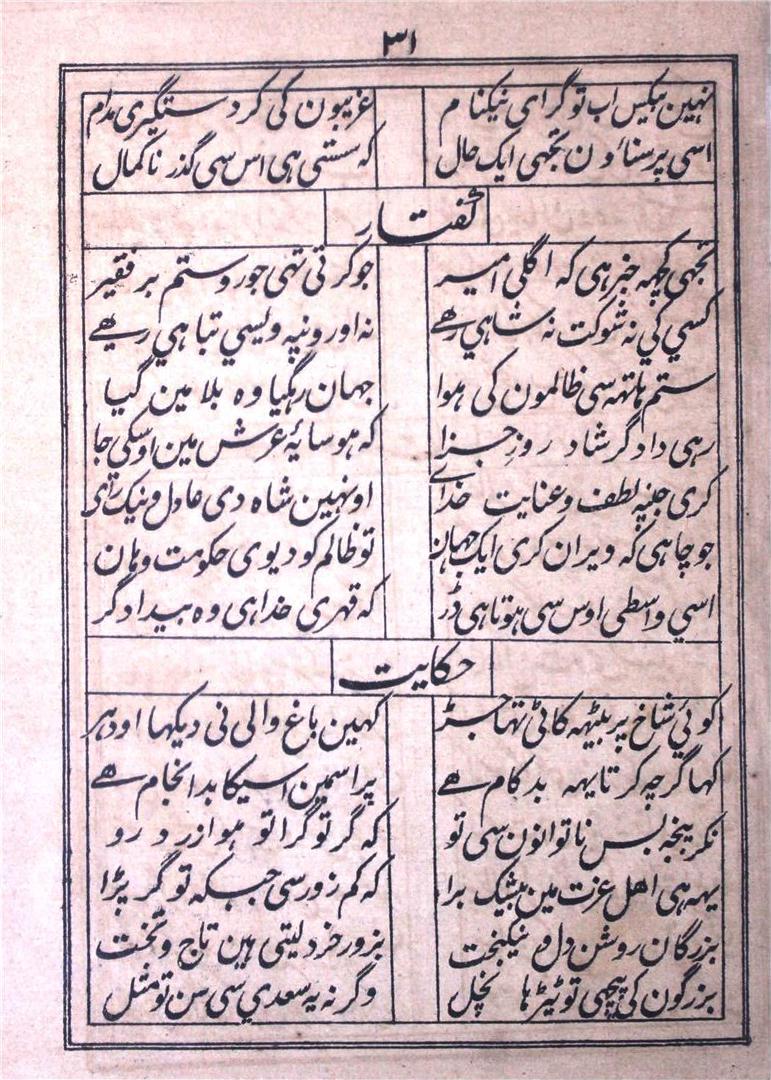 ۳۱
نہین بیکس اب تو گر ای نیکنام غریبون کی کر دستگیری مدام
اسی پر سناؤن تجہی ایک حال کہ سستی ہی اس سی گذر نا کمال
گفتار
تجہی کچہہ خبر ہی کہ اگلی امیر جو کرتی تہی جور و ستم بر فقیر
کسی کی نہ شوکت نہ شاہی رہے نہ اورونپہ ویسی تباہی رہے
ستم ہاتہہ سی ظالمون کی ہوا جہان رہگیا وہ بلا مین گیا
رہی دادگر شاد روز جزا کہ ہو سایۂ عرش مین اوسکی جا
کری جنپہ لطف و عنایت خدای اونہین شاہ دی عادل و نیک رای
جو چاہی کہ ویران کری ایک جہان تو ظالم کو دیوی حکومت وہان
اسی واسطی اوس سی ہوتا ہی ڈر کہ قہری خدا ہی وہ بیدادگر
حکایت
کوئی شاخ پر بیٹہہ کاٹی تہا جڑ کہین باغ والی نی دیکہا اودہر
کہا گرچہ کرتا یہہ بد کام ہے پر اسمین اسیکا بد انجام ہے
نکر پنجہ بس ناتوانون سی تو کہ گر تو گرا تو ہوا زرد رو
یہہ ہی اہل عزت مین بیشک برا کہ کم زور سی جبکہ تو گر پڑا
بزرگان روشن دل و نیکبخت بزور خرد لیتی ہین تاج و تخت
بزرگون کی پیچہی تو ٹیڑہا نچل وگرنہ یہ سعدی سی سن تو مثل